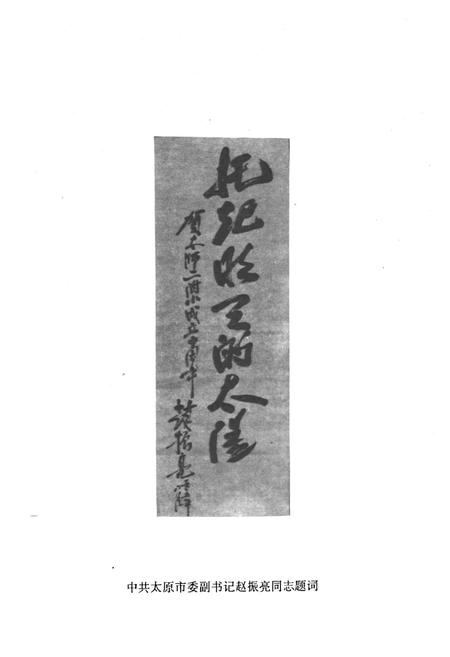 托起明天的太阳
贺太师二附小成立
赵振亮
中共太原市委副书记赵振亮同志题词